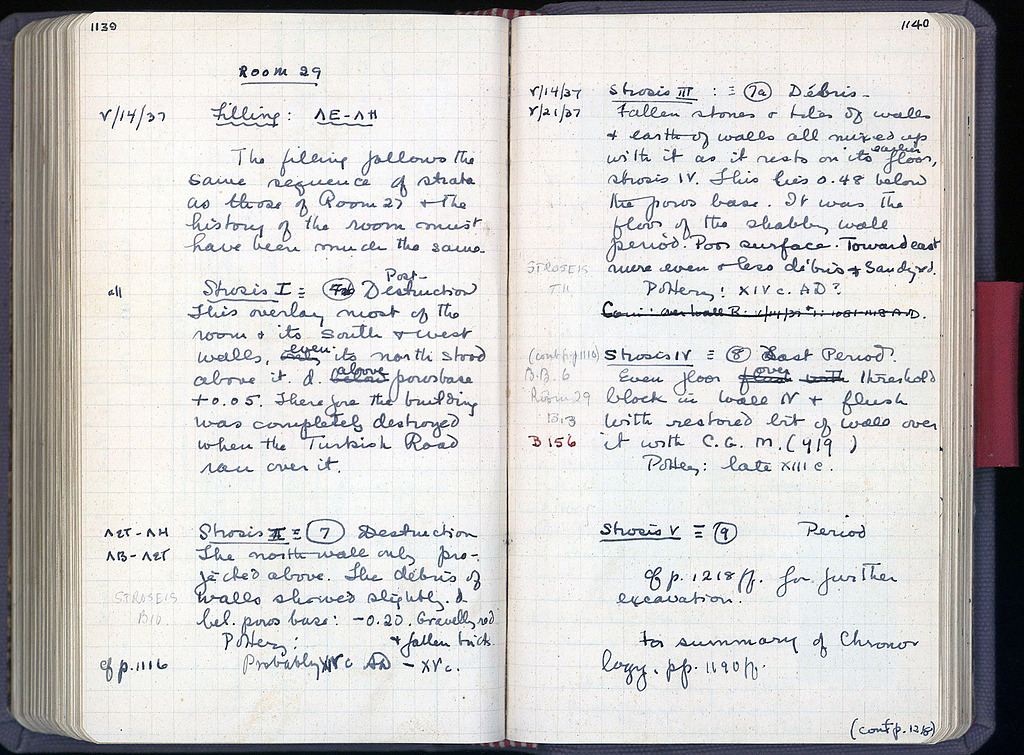 1139
Room 29
V/14/37 Filling: ΛE-ΛH
The filling follows the
same sequence of strata
as those of Room 27 + the
history of the room must
have been much the same.
all Strosis I ≡ Post-Destruction
This overlay most of the
room & its south & west
walls, even its north stood
above it. d. above poros base
+0.05. Therefore the building
was completely destroyed
when the Turkish Road
ran over it.
ΛΣT-ΛH Strosis II ≡ (7) Destruction
ΛB-ΛΣT The north wall only pro-
jected above. The débris of
STROSEIS walls showed slightly. d
B10 bel. poros base: -0.20. Gravelly red
Pottery: + fallen brick.
cf p. 1116 Probably XIV c AD - XV c.
1140
V/14/37 Strosis III : ≡ (7a) Débris-
V/21/37 Fallen stones & tiles of walls
& earth of walls all mixed up
with it as it rests on its earlier floor,
strosis IV. This lies 0.48 below
the poros base. It was the
floor of the shabby wall
period. Poor surface. Toward east
STROSEIS more even & less débris & sandy rd.
TH Pottery: XIV c. AD?
Coin: over wall R: V/14/37
(cont fr p 1116) Strosis IV ≡ (8) Last Period?
B.B. 6 Even floor over threshold
Room 29 block in wall N + flush
B13 with restored bit of wall over
B 156 it with C.G. M. (419)
Pottery: late XIII c.
Strosis V ≡ (9) Period
cf p. 1218 ff. for further
excavation.
For summary of Chronol
logy, pp. 1190 ff.
(cont p. 1218)